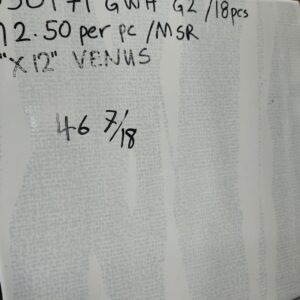 GWH G2 /18pcs
12.50 per pc /MSR
"X12" VENUS
46 7/18